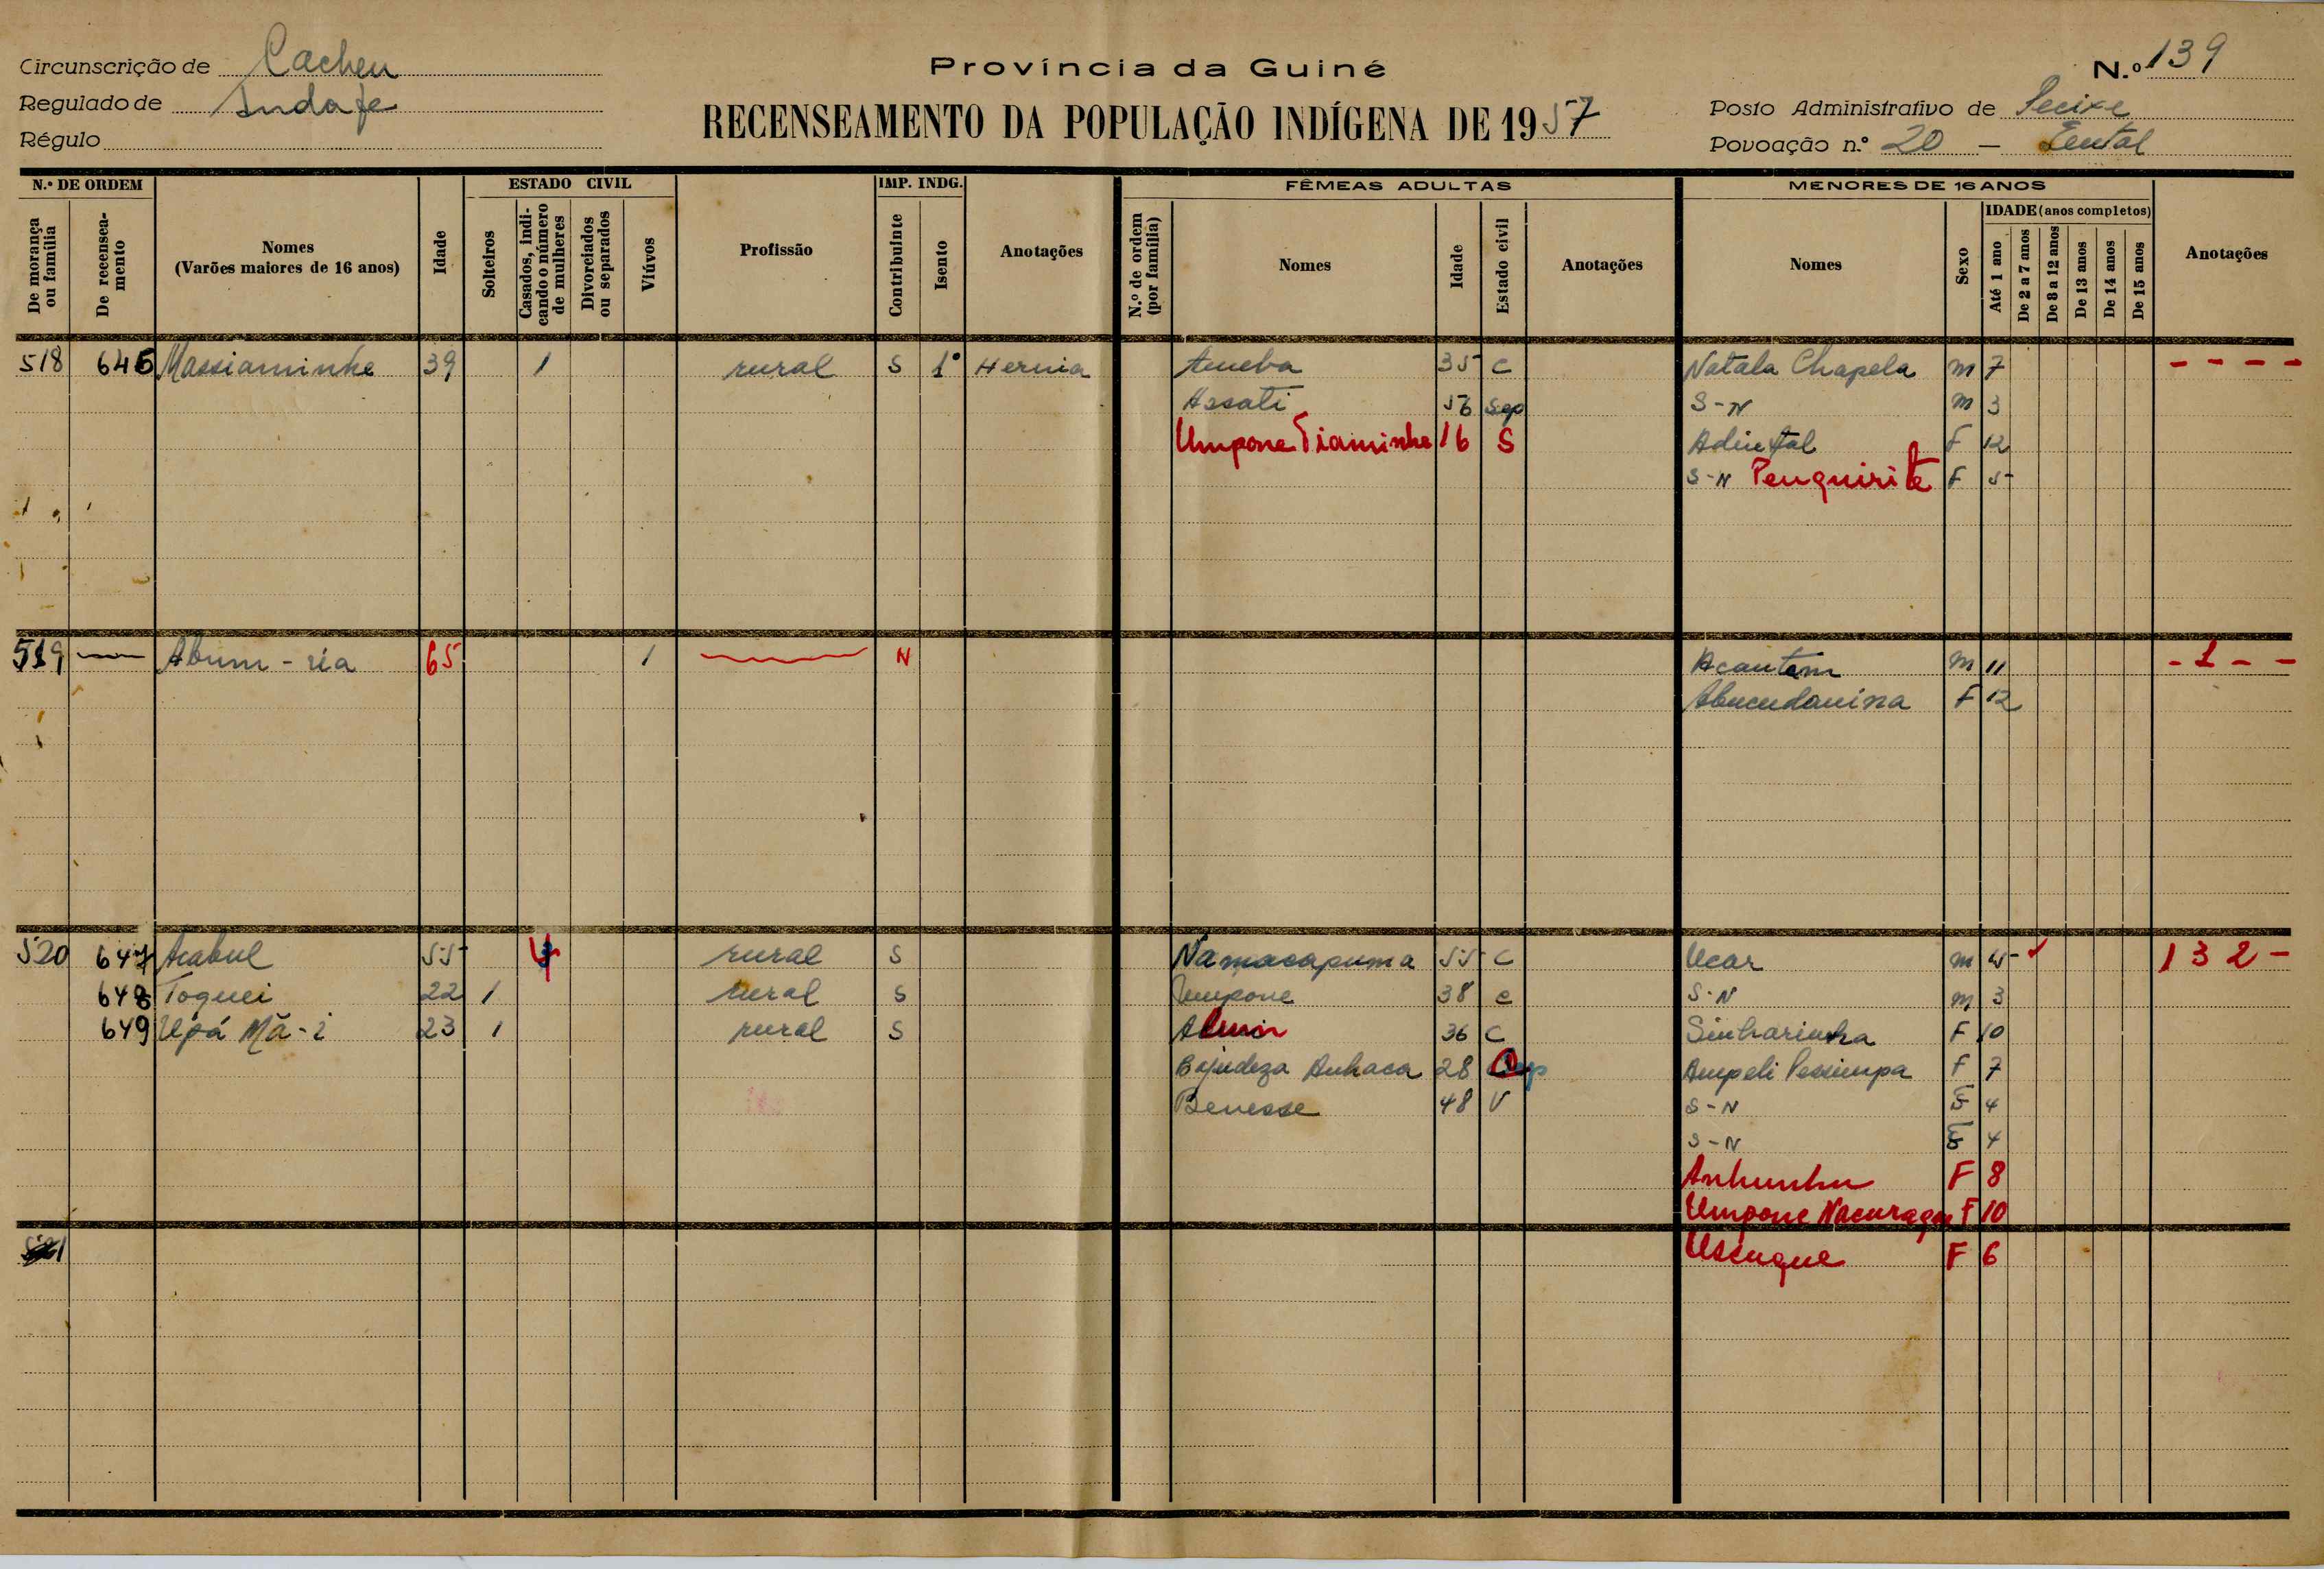 Circunscrição de Cacheu
Regulado de Indafe
Régulo
Província da Guiné
RECENSEAMENTO DA POPULAÇÃO INDÍGENA DE 1957
N.º 139
Posto Administrativo de Pecixe
Povoação n.º 20 -
N.º DE ORDEM
De morança ou família
De recenseamento
Nomes
(Varões maiores de 16 anos)
Idade
ESTADO CIVIL
Solteiros
Casados, indicando o número de mulheres
Divorciados ou separados
Viúvos
Profissão
IMP. INDG.
Contribuinte
Isento
Anotações
FÊMEAS ADULTAS
N.º de ordem (por família)
Nomes
Idade
Estado civil
Anotações
MENORES DE 16 ANOS
Nomes
Sexo
IDADE (anos completos)
Até 1 ano
De 2 a 7 anos
De 8 a 12 anos
De 13 anos
De 14 anos
De 15 anos
Anotações
518 646 Massiaminhe 39 1 rural S 1º Hernia Ameba 35 C Natala Chapela m 7 - - - -
Assati 56 Sep S-N m 3
Umpone Tiaminhe 16 S F 12
S-N Penquirite F 5
519 Abum-ria 65 1 N Acantam m 11 - 1 - -
Abucudanina F 12
520 647 Acabul 55 4 rural S Namacapuma 55 C Ucar m 15 132-
648 Toquei 22 1 rural S Umpone 38 C S-N m 3
649 Upá Mã-i 23 1 rural S 36 C Sinharinha F 10
Bajudeza Anhaca 28 F 7
Benesse 48 V S-N F 4
S-N F 4
Anhunhu F 8
Umpone F 10
Ussuque F 6